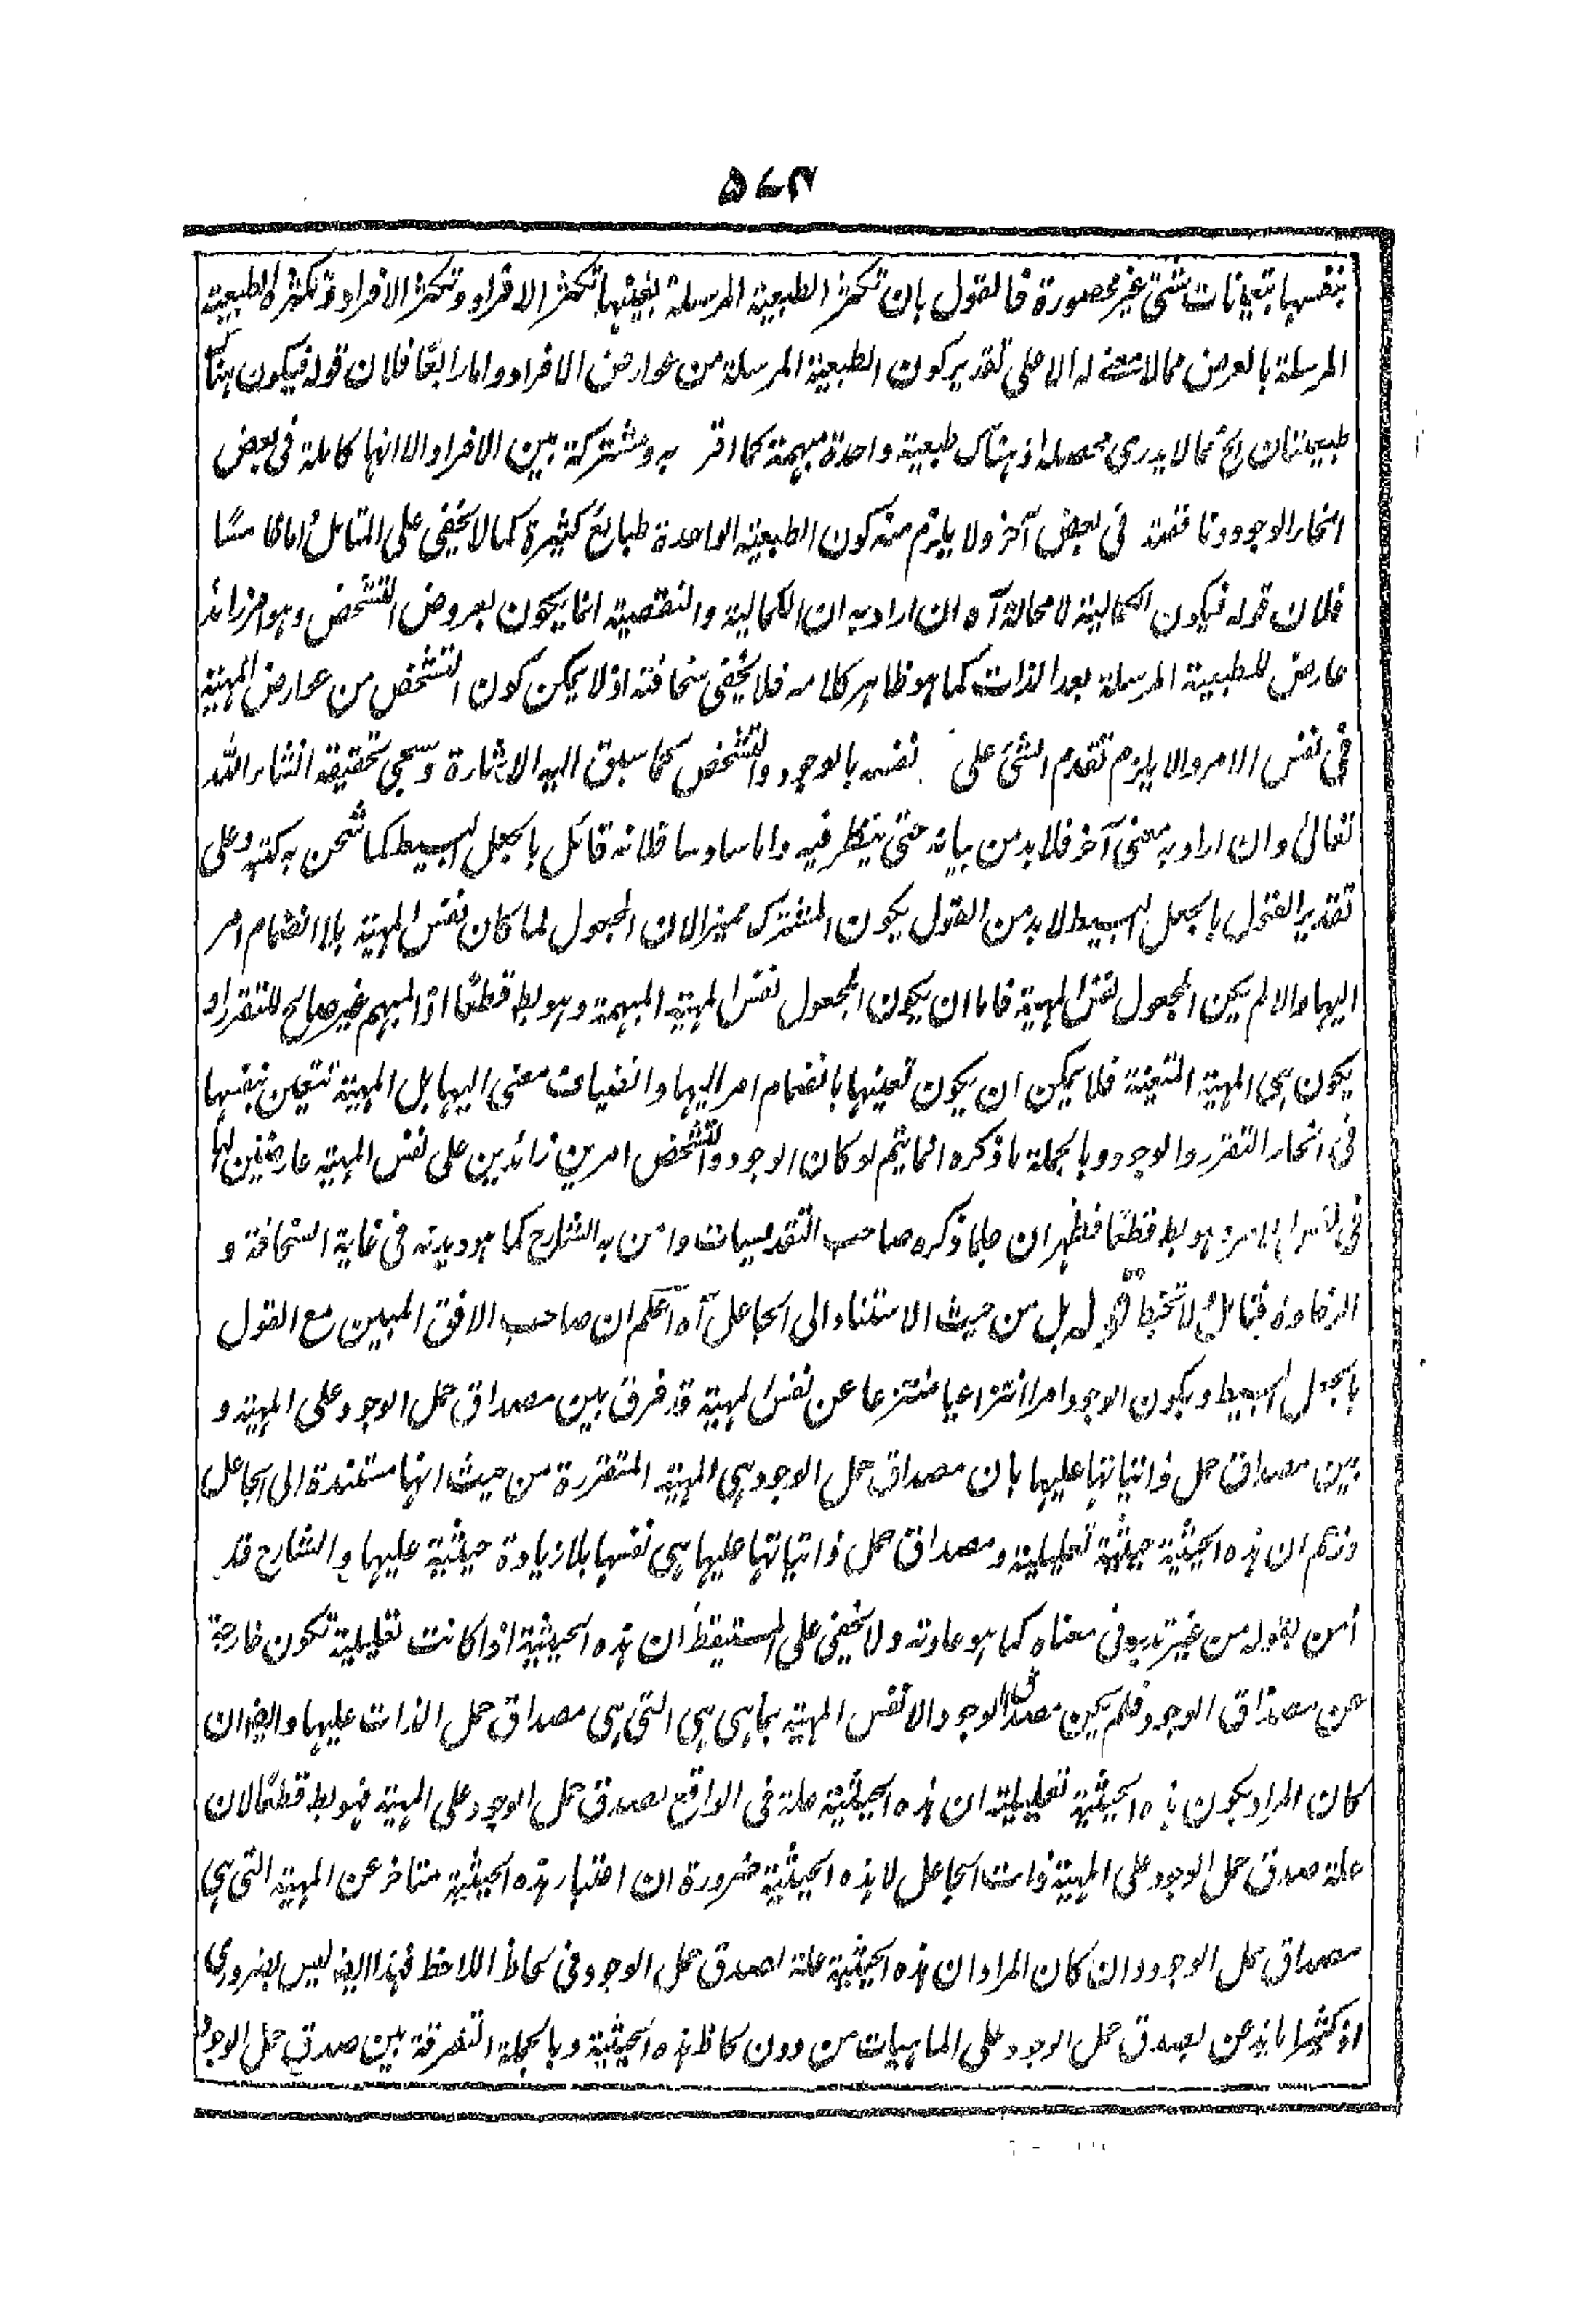 ۵۷۴
بنفسها بتعينات شتى غير محصورة فالقول بان تكثر الطبيعة المرسلة بعينها تكثر الافراد وتكثر الافراد وتكثره الطبيعة
المرسلة بالعرض مما لا معنى له الا على تقدير كون الطبيعة المرسلة من عوارض الافراد واما رابعًا فلان قوله فيكون هناك
طبيعتان الخ مما لا يدرى محصله اذ هناك طبيعة واحدة مبهمة كما اقر به ومشتركة بين الافراد الا انها كاملة فى بعض
انحاء الوجود وناقصة فى بعض آخر ولا يلزم منه كون الطبيعة الواحدة طبائع كثيرة كما لا يخفى على المتامل واما خامسًا
فلان قوله فيكون الكمالية لا محالة آه ان اراد به ان الكمالية والنقصية انما يكون بعروض التشخص وهو امر زائد
عارض للطبيعة المرسلة بعد الذات كما هو ظاهر كلامه فلا يخفى سخافته اذ لا يمكن كون التشخص من عوارض المهية
فى نفس الامر والا يلزم تقدم الشئ على نفسه بالوجود والتشخص كما سبق اليه الاشارة وسيجئ تحقيقه انشاء الله
تعالى وان اراد به معنى آخر فلا بد من بيانه حتى ينظر فيه واما سادسا فلانه قائل بالجعل البسيط كما شحن به كتبه وعلى
تقدير القول بالجعل البسيط لا بد من القول بكون المشترك مميزا لان المجعول لما كان نفس المهية بلا انضمام امر
اليها والا لم يكن المجعول نفس المهية فاما ان يكون المجعول نفس المهية المبهمة وهو بط قطعًا اذ المبهم غير صالح للتقرر او
يكون هى المهية المتعينة فلا يمكن ان يكون تعينها بانضمام امر اليها وانضياف معنى اليها بل المهية تتعين بنفسها
فى انحاء التقرر والوجود وبالجملة ما ذكره انما يتم لو كان الوجود والتشخص امرين زائدين على نفس المهية عارضين لها
فى نفس الامر وهو بط قطعًا فظهر ان جل ما ذكره صاحب التقديسات وامن به الشارح كما هو ديدنه فى غاية السخافة و
الرخاوة فتامل ولا تخبط قوله بل من حيث الاستناد الى الجاعل آه اعلم ان صاحب الافق المبين مع القول
بالجعل البسيط وبكون الوجود امرا انتزاعيا منتزعا عن نفس المهية قد فرق بين مصداق حمل الوجود على المهية و
بين مصداق حمل ذاتياتها عليها بان مصداق حمل الوجود هى المهية المتقررة من حيث انها مستندة الى الجاعل
وزعم ان هذه الحيثية حيثية تعليلية ومصداق حمل ذاتياتها عليها هى نفسها بلا زيادة حيثية عليها والشارح قد
أمن بقوله من غير تدبر فى معناه كما هو عادته ولا يخفى على المستيقظ ان هذه الحيثية اذا كانت تعليلية تكون خارجة
عن مصداق الوجود فلم يكن مصداق الوجود الا نفس المهية بما هى هى التى هى مصداق حمل الذات عليها وايضا ان
كان المراد بكون هذه الحيثية تعليلية ان هذه الحيثية علة فى الواقع لصدق حمل الوجود على المهية فهو بط قطعًا لان
علة صدق حمل الوجود على المهية ذات الجاعل لا هذه الحيثية ضرورة ان اعتبار هذه الحيثية متاخر عن المهية التى هى
مصداق حمل الوجود وان كان المراد ان هذه الحيثية علة لصدق حمل الوجود فى لحاظ اللاحظ فهذا ايضا ليس بضرورى
اذ كثيرا ما يذعن بصدق حمل الوجود على الماهيات من دون لحاظ هذه الحيثية وبالجملة التفرقة بين صدق حمل الوجود